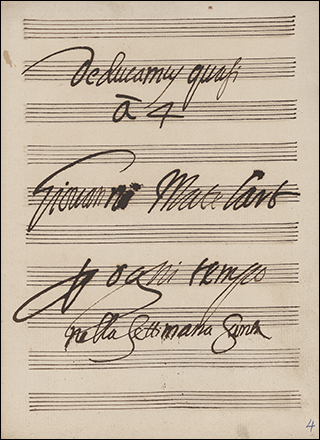 Deducamus quasi
à 4
Giovanni Matelart
p ogni tempo
nella Settimana Santa
4